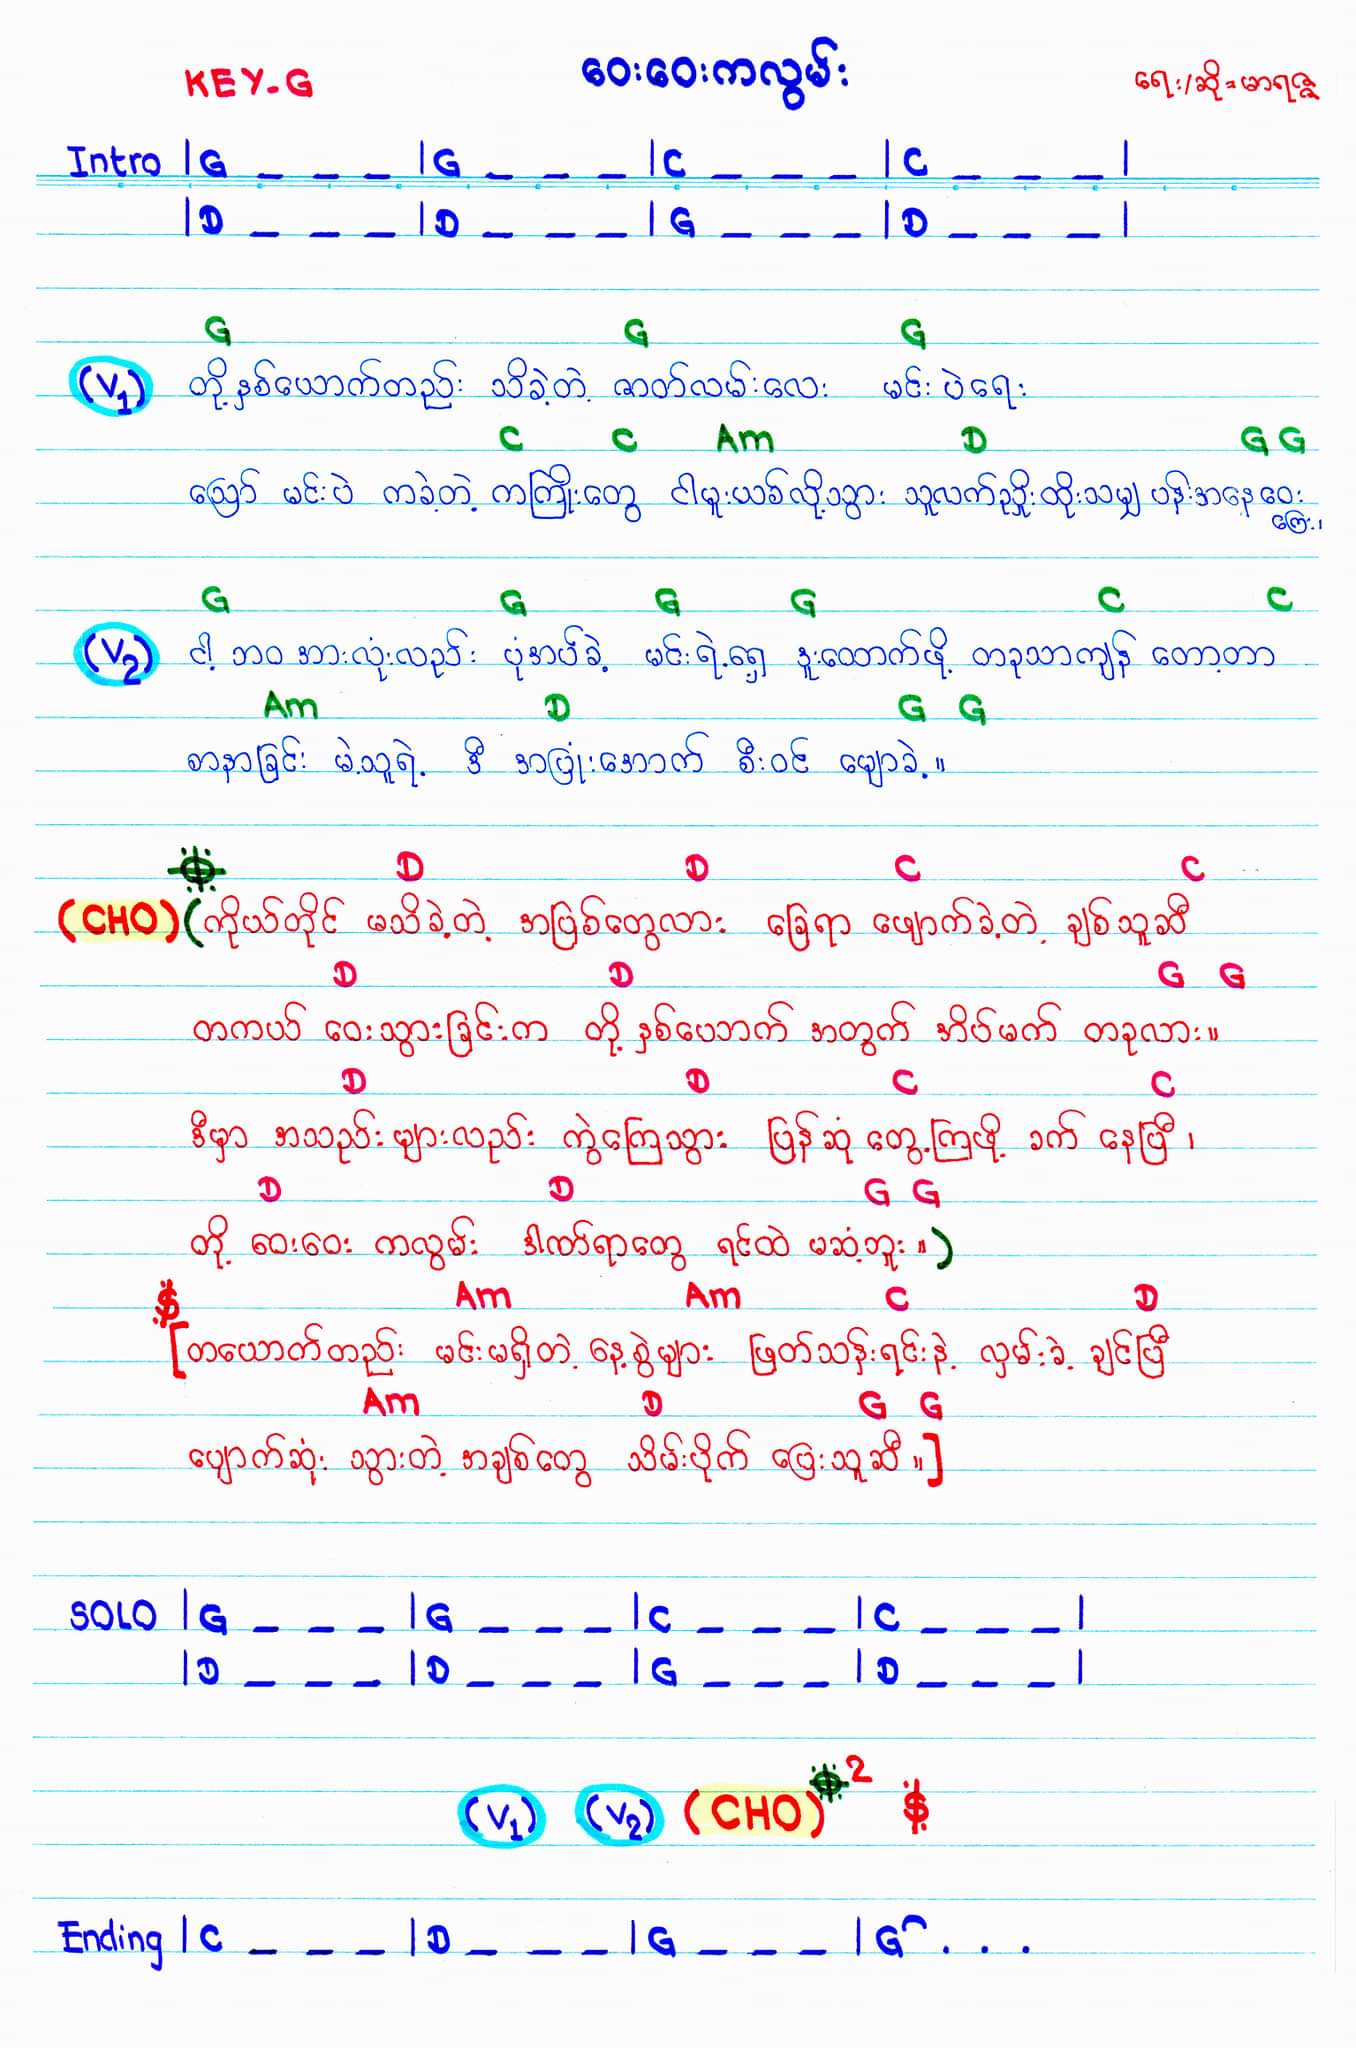 KEY-G ဝေးဝေးကလွမ်း ရေး/ဆို = မာရဇ္ဇ
Intro |G _ _ _ |G _ _ _ |C _ _ _ |C _ _ _ |
|D _ _ _ |D _ _ _ |G _ _ _ |D _ _ _ |
G G G
(V1) တို့နှစ်ယောက်တည်း သိခဲ့တဲ့ ဇာတ်လမ်းလေး မင်းပဲရေး
C C Am D G G
ဪ မင်းပဲ ကခဲ့တဲ့ ကကြိုးတွေ ငါမူးယစ်လို့သွား သူလက်ညှိုးထိုးသမျှ ပန်းအနေဝေး
ကြေး၊
G G G G C C
(V2) ငါ့ ဘဝအားလုံးလည်း ပုံအပ်ခဲ့ မင်းရဲ့ရှေ့ ဒူးထောက်ဖို့ တခုသာကျန် တော့တာ
Am D G G
စာနာခြင်း မဲ့သူရဲ့ ဒီ အပြုံးအောက် စီးဝင် မျောခဲ့။
D D C C
(CHO) (ကိုယ်တိုင် မသိခဲ့တဲ့ အပြစ်တွေလား ခြေရာ ဖျောက်ခဲ့တဲ့ ချစ်သူဆီ
D D G G
တကယ် ဝေးသွားခြင်းက တို့နှစ်ယောက် အတွက် အိပ်မက် တခုလား။
D D C C
ဒီမှာ အသည်းများလည်း ကွဲကြေသွား ပြန်ဆုံ တွေ့ကြဖို့ ခက် နေပြီ၊
D D G G
တို့ ဝေးဝေး ကလွမ်း ဒါဏ်ရာတွေ ရင်ထဲ မဆံ့ဘူး။)
Am Am C D
[တယောက်တည်း မင်းမရှိတဲ့ နေ့စွဲများ ဖြတ်သန်းရင်းနဲ့ လှမ်းခဲ့ ချင်ပြီ
Am D G G
ပျောက်ဆုံး သွားတဲ့ အချစ်တွေ သိမ်းပိုက် ပြေးသူဆီ။]
SOLO |G _ _ _ |G _ _ _ |C _ _ _ |C _ _ _ |
|D _ _ _ |D _ _ _ |G _ _ _ |D _ _ _ |
(V1) (V2) (CHO) 2 $
Ending |C _ _ _ |D _ _ _ |G _ _ _ |G . . .